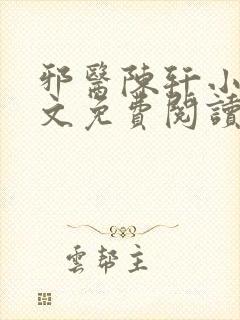 邪醫陳軒小
文免費閱讀
雲幫主